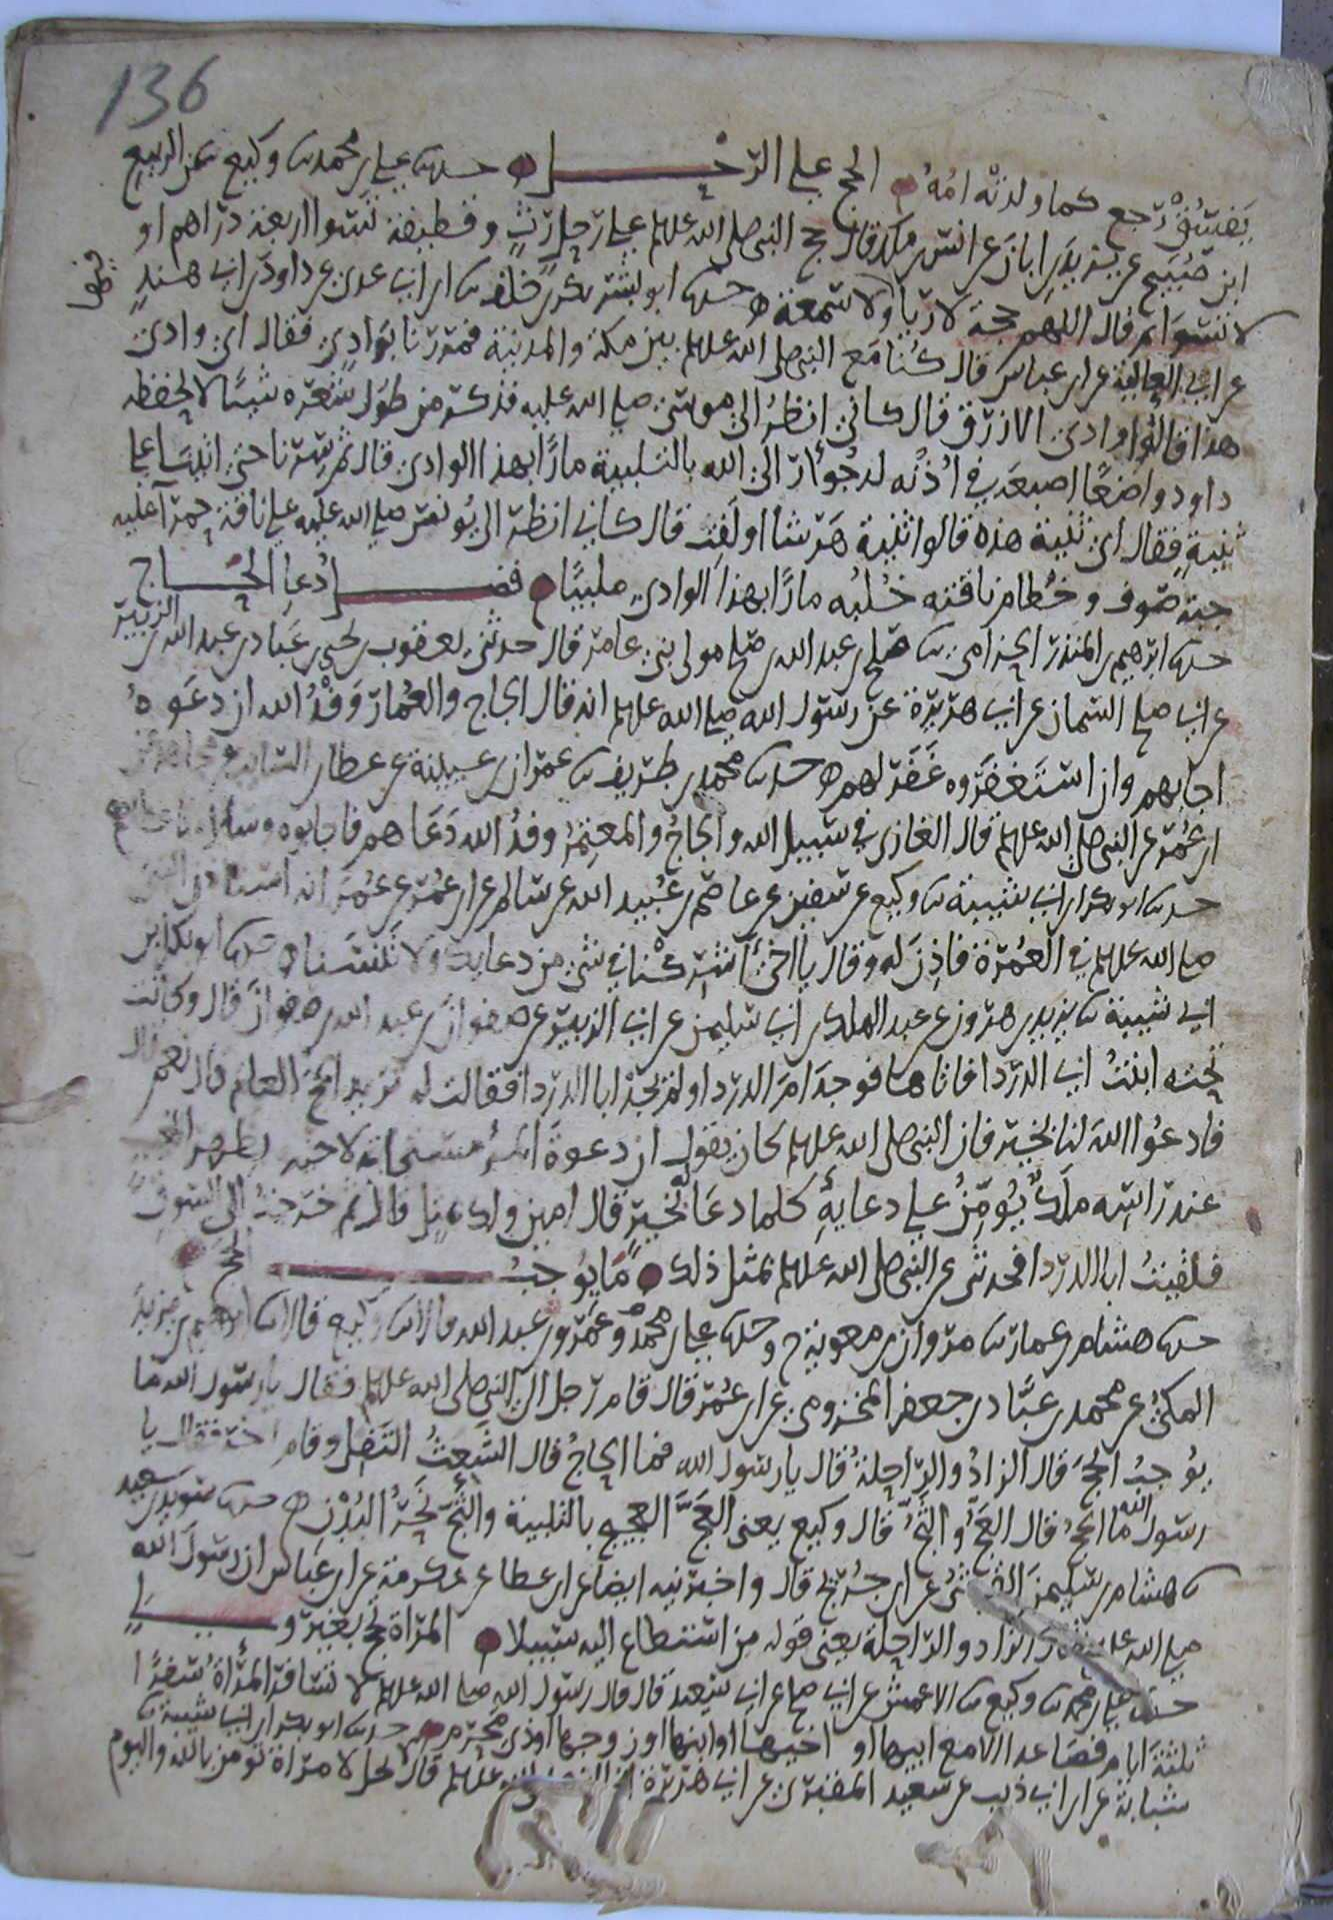 136
يَفسُق رجع كما ولدته امه الحج علي الرحل حدثنا علي بن محمد ثنا وكيع عن الربيع
ابن صُبَيح عن يزيد بن ابان عن انس بن ملك قال حج النبي صلى الله عليه وسلم علي رحل رثٍ وقطيفة تسوا اربعة دراهم او
لا تسوا ثم قال اللهم حجة لا ريا ولا سمعة حدثنا ابو بشر بكر بن خلف ثنا ابن ابي عدي عن داود بن ابي هند
عن ابي العالية عن ابن عباس قال كنا مع النبي صلى الله عليه وسلم بين مكة والمدينة فمررنا بوادٍ فقال اي وادي
هذا قالوا وادي الازرق قال كاني انظر الي موسي صلي الله عليه فذكر من طول شعره شيئا لا يحفظه
داود واضعًا اصبعه في اذنه له جؤار الي الله بالتلبية مارًا بهذا الوادي قال ثم سرنا حتي اتينا علي
ثنية فقال اي ثنية هذه قالوا ثنية هرشا او لفت قال كاني انظر الي يونس صلي الله عليه علي ناقة حمرا عليه
جبة صوف وخطام ناقته خلبه مارًا بهذا الوادي ملبيًا فضل دعا الحاج
حدثنا ابرهيم بن المنذر الحزامي ثنا صلح بن عبد الله بن صلح مولي بني عامر قال حدثني يعقوب بن يحيي بن عباد بن عبد الله بن الزبير
عن ابي صلح السمان عن ابي هريرة عن رسول الله صلى الله عليه وسلم انه قال الحاج والعمار وفد الله ان دعوه
اجابهم وان استغفروه غفر لهم حدثنا محمد بن طريف ثنا عمران بن عيينة عن عطا بن السايب عن مجاهد عن
ابن عمر عن النبي صلى الله عليه وسلم قال الغازي في سبيل الله والحاج والمعتمر وفد الله دعاهم فاجابوه وسالوه فاعطاهم
حدثنا ابو بكر بن ابي شيبة ثنا وكيع عن سفين عن عاصم بن عبيد الله عن سالم عن ابن عمر عن عمر انه استاذن النبي
صلى الله عليه وسلم في العمرة فاذن له وقال يا اخي اشركنا في شي من دعايك ولا تنسنا حدثنا ابو بكر بن
ابي شيبة ثنا يزيد بن هرون عن عبد الملك بن ابي سليمن عن ابي الزبير عن صفوان بن عبد الله بن صفوان قال وكانت
تحته ابنت ابي الدردا فاتاها فوجد ام الدردا ولم يجد ابا الدردا فقالت له تريد الحج العام قال نعم قالت
فادعوا الله لنا بخير فان النبي صلى الله عليه وسلم كان يقول ان دعوة المرء مستجابة لاخيه بظهر الغيب
عند راسه ملك يؤمن علي دعايه كلما دعا بخير قال امين ولك بمثل قال ثم خرجت الي السوق
فلقيت ابا الدردا فحدثني عن النبي صلى الله عليه وسلم بمثل ذلك ما يوجب الحج
حدثنا هشام بن عمار ثنا مروان بن معوية ح وحدثنا علي بن محمد وعمرو بن عبد الله قالا ثنا وكيع قالا ثنا ابرهيم بن يزيد
المكي عن محمد بن عباد بن جعفر المخزومي عن ابن عمر قال قام رجل الي النبي صلى الله عليه وسلم فقال يا رسول الله ما
يوجب الحج قال الزاد والراحلة قال يا رسول الله فما الحاج قال الشعث التفل وقام اخر فقال يا
رسول الله ما الحج قال العج والثج قال وكيع يعني العج العجيج بالتلبية والثج نحر البدن حدثنا سويد بن سعيد
ثنا هشام بن سليمن القرشي عن ابن جريج قال واخبرنيه ايضا عن ابن عطا عن عكرمة عن ابن عباس ان رسول الله
صلى الله عليه وسلم قال الزاد والراحلة يعني قوله من استطاع اليه سبيلا المراة تحج بغير ولي
حدثنا علي بن محمد ثنا وكيع ثنا الاعمش عن ابي صلح عن ابي سعيد قال قال رسول الله صلى الله عليه وسلم لا تسافر المراة سفرًا
ثلثة ايام فصاعدا الا مع ابيها او اخيها او ابنها او زوجها او ذي محرم حدثنا ابو بكر بن ابي شيبة ثنا
شبابة عن ابن ابي ذيب عن سعيد المقبري عن ابي هريرة ان النبي صلى الله عليه وسلم قال لا يحل لامراة تومن بالله واليوم